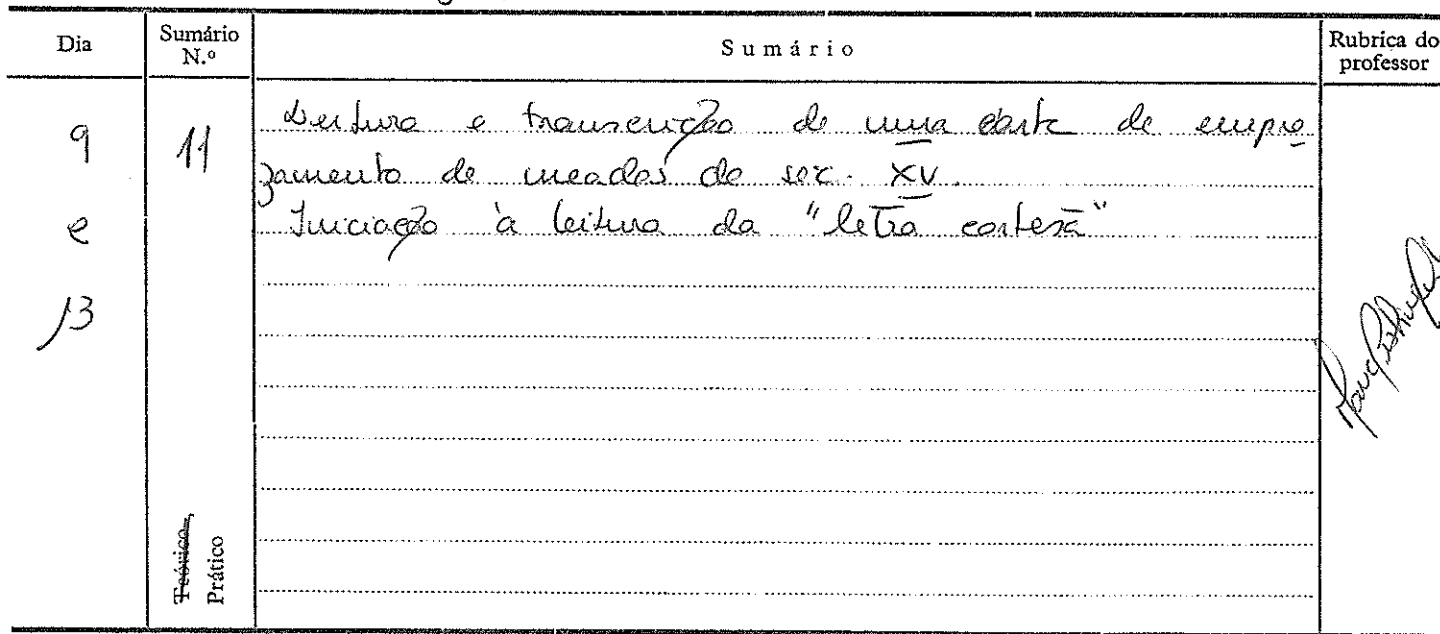 Dia
Sumário N.º
Sumário
Rubrica do professor
9 e 13
11
Leitura e transcrição de uma carta de empra
zamento de meados do séc. XV.
Iniciação à leitura da "letra cortesã"
Teórico
Prático